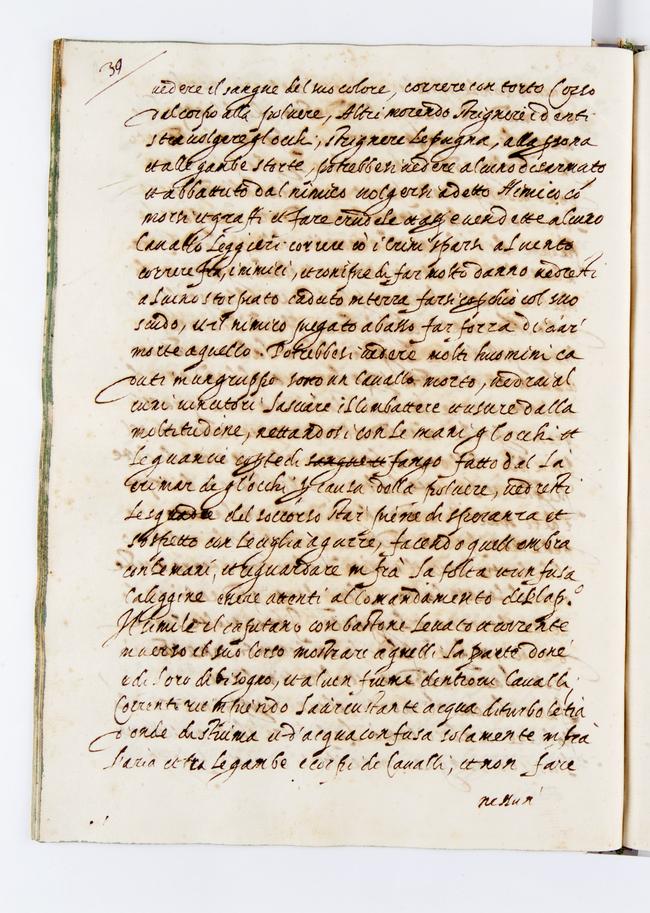 39
uedere il sangue del suo colore, correre con torto Corso
dal corpo alla poluere, Altri morendo strignere i denti
strauolgere gl'occhi, strignere le pugna, alla persona
et alle gambe storte, potrebbesi uedere alcuno disarmato
et abbattuto dal nimico uolgersi a detto Nimico, cō
morsi et graffi et fare crudele et aspre uendette alcuno
Cauallo Leggieri correre cō i crini sparsi al uento
correre fra, i nimici, et con i piedi far molto danno uedresti
alcuno storpiato caduto in terra farsi copchio col suo
scudo, et il nimico piegato a basso far forza di dar
morte a quello. Potrebbesi uedere molti huomini ca
duti in un gruppo sotto un Cauallo morto, uedrai al
cuni uincitori Lasciare il Combattere et uscire dalla
moltitudine, nettandosi con Le mani gl'occhi et
Le guancie coperte di sangue et fango fatto dal La
crimar de gl'occhi p causa della poluere, uedresti
Le squadre del soccorso star piene di speranza et
sospetto con Le ciglia aguzze, facendo quelle ombra
con Le mani, et riguardare in frà La folta et confusa
Caliggine essere attenti al Comandamento del Cap.o
Et simile il capitano con bastone Leuato et corrente
in uerso il suo corso mostrare a quelli La parte doue
è di Loro bisogno, et alcun fiume dentroui Caualli
Correnti riempiendo La circustante acqua di turboletia
d'onde di stiuma et d'acqua confusa solamente in frà
L'aria et tra Le gambe e corpi de Caualli, et non fare
nessun'